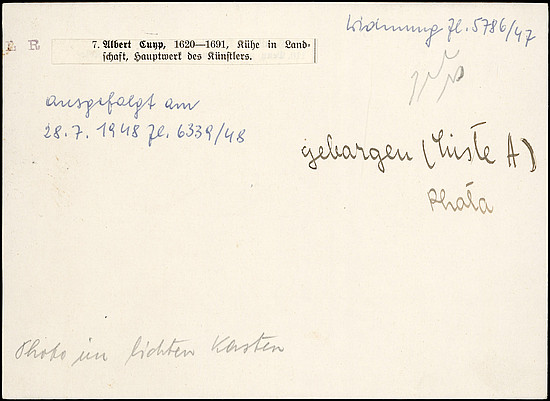 Widmung Zl. 5786/47
L R
7. Albert Cuyp, 1620—1691, Kühe in Land-
schaft, Hauptwerk des Künstlers.
ausgefolgt am
28. 7. 1948 Zl. 6339/48
geborgen (Liste A)
Photo
Photo im lichten Kasten